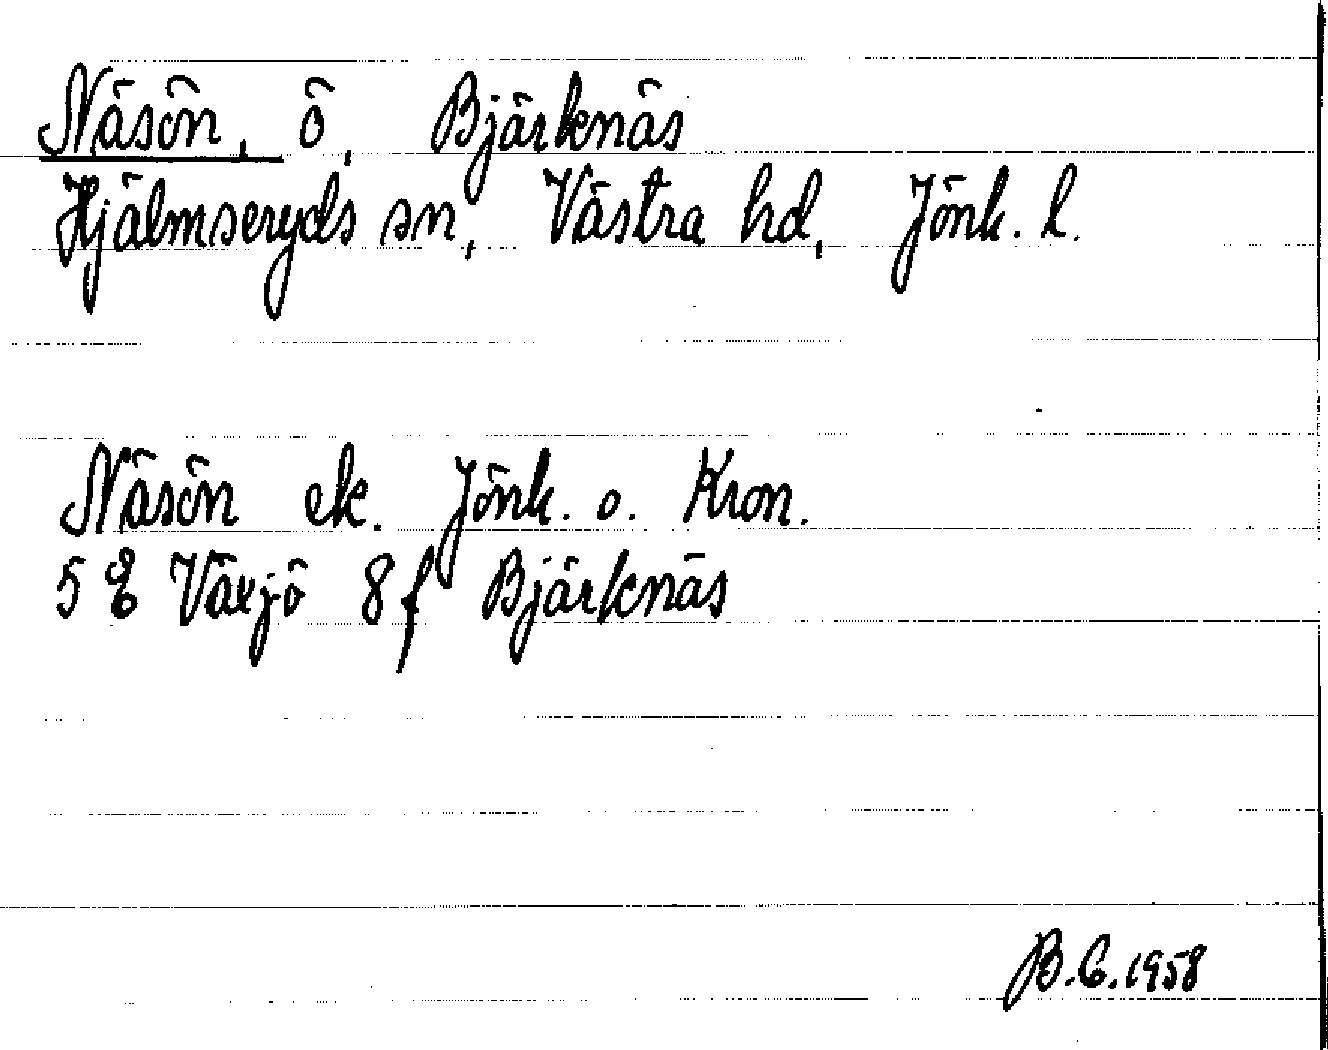 Näsön, ö, Bjärknäs
Hjälmseryds sn, Västra hd, Jönk. l.
Näsön ek. Jönk. o. Kron.
5 E Växjö 8 f Bjärknäs
B.E. 1958